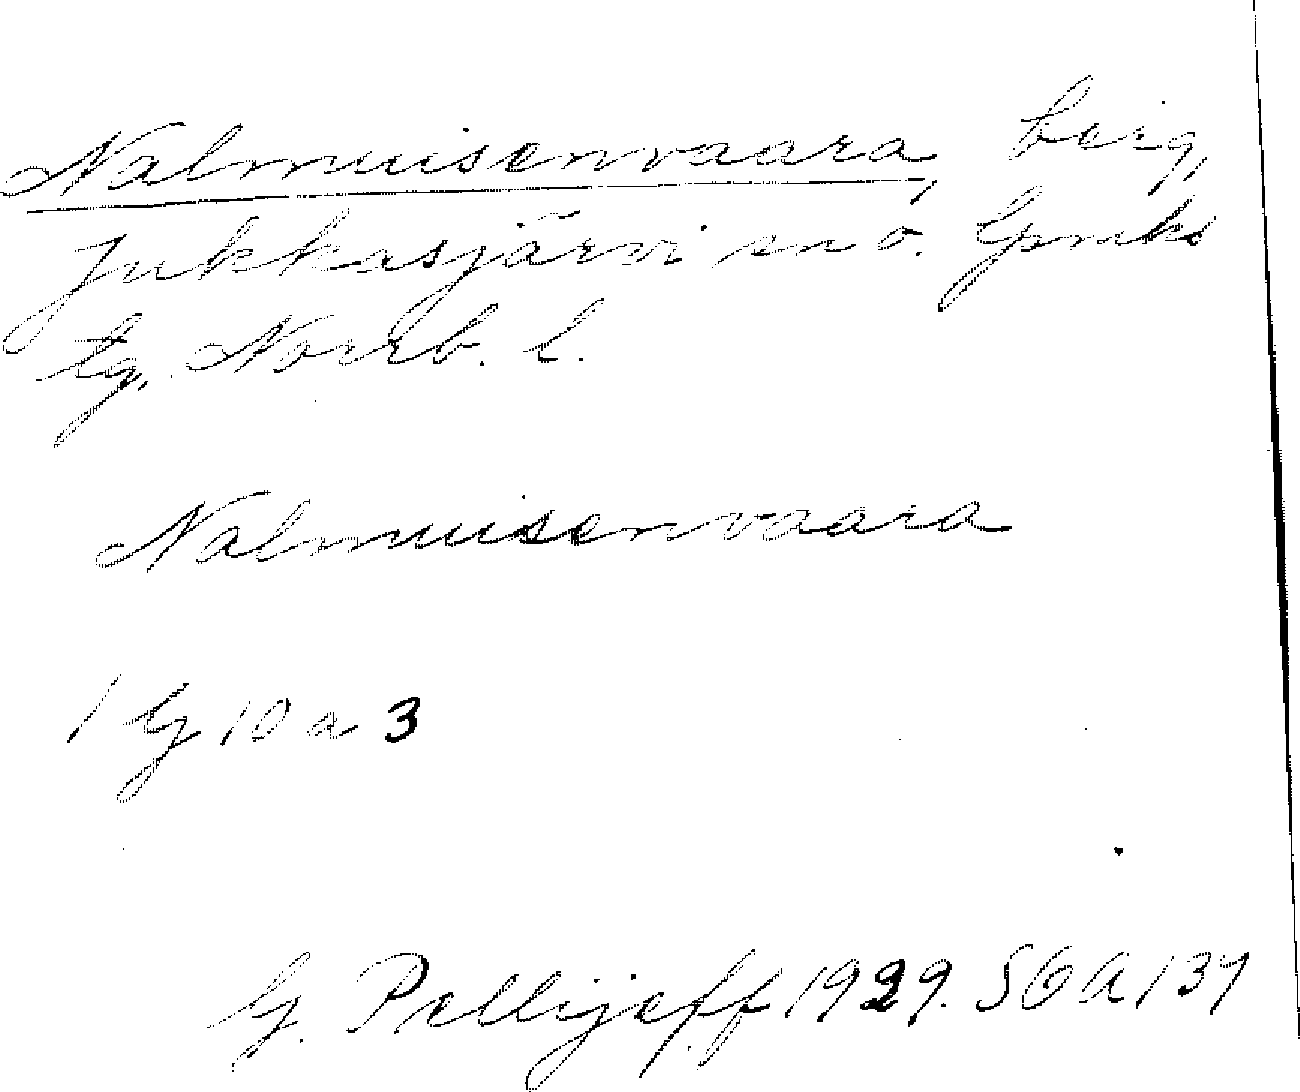 Nalmuisenvaara, berg,
Jukkasjärvi sn o. Gpmks
tg, Norrb. l.
Nalmuisenvaara
1 G 10 a 3
G. Pellijeff 1929. SOA 137